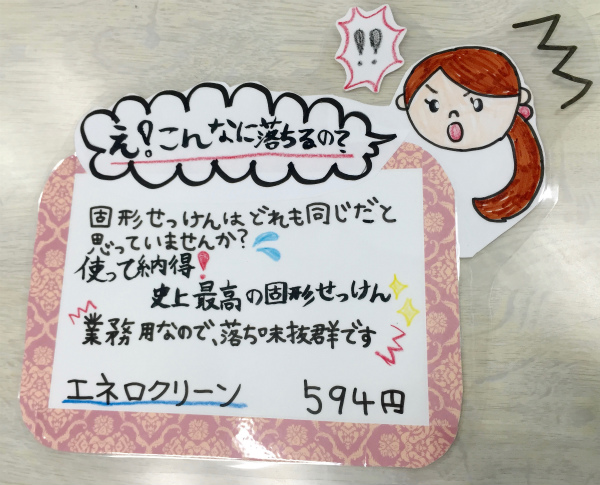 !!
え!こんなに落ちるの?
固形せっけんは、どれも同じだと
思っていませんか?
使って納得!
史上最高の固形せっけん
業務用なので、落ち味抜群です
エネロクリーン 594円